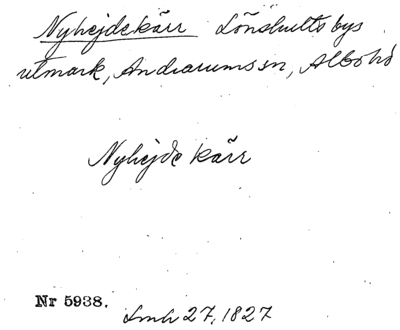 Nyhejdekärr Lönshults bys
utmark, Andrarums sn, Albo hd
Nyhejde kärr
Nr 5938.
Lmh 27, 1827